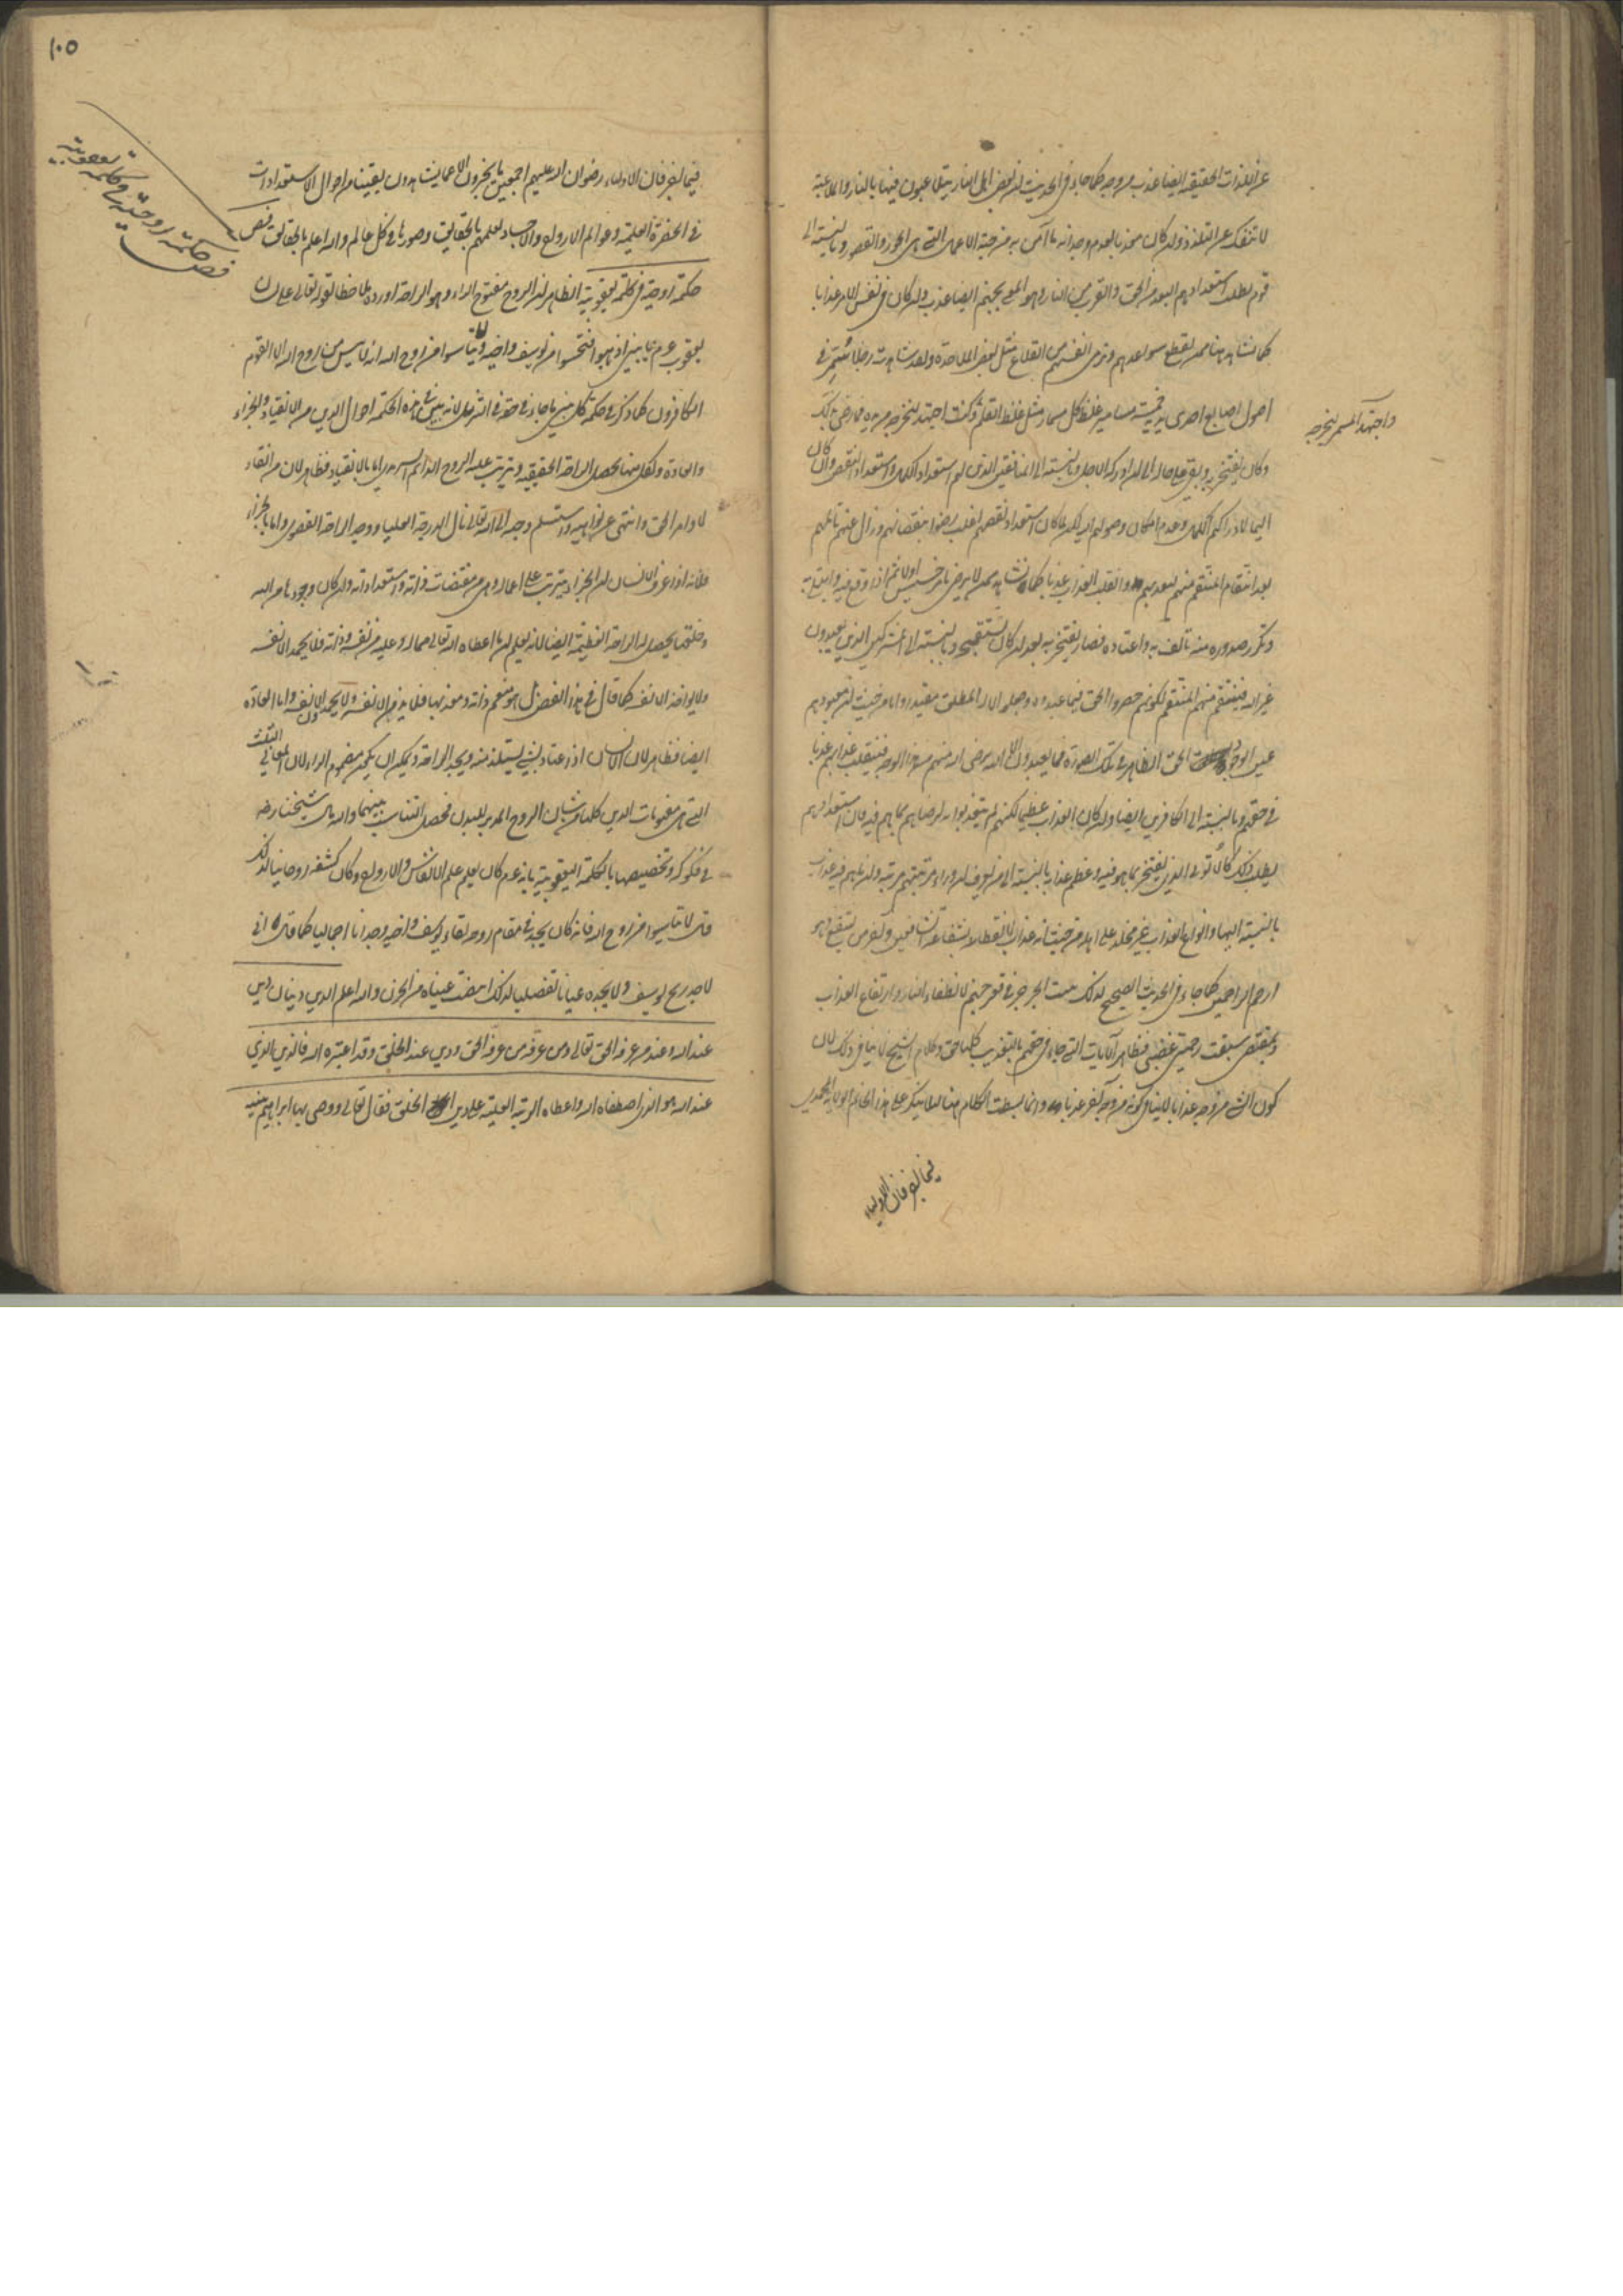 عن اللذات الحقيقية ايضا عذب من وجه كما جاء في الحديث ان بعض اهل النار يتلاعبون فيها بالنار والملاعبة
لا تنفك عن التلذذ وان كان معذبا لعدم وجدانه ما آمن به من جنة الاعمال التي هي الحور والقصور وبالنسبة الى
قوم يطلب استعدادهم البعد من الحق والقرب من النار وهو المعنى بجهنم ايضا عذب وان كان في نفس الامر عذابا
كما نشاهد هنا ممن يقطع سواعدهم ويرمى انفسهم من القلاع مثل بعض الملاحدة ولقد شاهدت رجلا سمر في
اصول اصابع احدى يديه خمسة مسامير غلظ كل مسمار مثل غلظ القلم وكنت اجتهد ليخرجه من يده فما رضى بذلك
واجتهد المسمر ليخرجه
وكان يفتخر به وبقى على حاله الى ان ادركه الاجل وبالنسبة الى المنافقين الذين لهم استعداد الكمال واستعداد النقص وان كان
اليما لادراكهم الكمال وعدم امكان وصولهم اليه لكن لما كان استعداد نقصهم اغلب رضوا بنقصانهم وزال عنهم تألمهم
بعد انتقام المنتقم منهم بتعذيبهم وانقلب العذاب عذبا كما نشاهد ممن لا يرضى بامر خسيس اولا ثم اذا وقع فيه وابتلى به
وتكرر صدوره منه تألف به واعتاده فصار يفتخر به بعد ان كان يستقبحه وبالنسبة الى المشركين الذين يعبدون
غير الله فينتقم منهم المنتقم لكونهم حصروا الحق فيما عبدوه وجعلوا الاله المطلق مقيدا واما من حيث ان معبودهم
عين الوجود الحق الظاهر في تلك الصورة فما يعبدون الا الله فرضى الله منهم من هذا الوجه فينقلب عذابهم عذبا
في حقهم وبالنسبة الى الكافرين ايضا وان كان العذاب عظيما لكنهم لم يتعذبوا به لرضاهم بما هم فيه فان استعدادهم
يطلب ذلك كالاتونى الذى يفتخر بما هو فيه وعظم عذابه بالنسبة الى من يعرف ان وراء مرتبتهم مرتبة وان ما هم فيه عذاب
بالنسبة اليها وانواع العذاب غير مخلد على اهله من حيث انه عذاب لانقطاعه بشفاعة الشافعين وآخر من يشفع وهو
ارحم الراحمين كما جاء في الحديث الصحيح لذلك ينبت الجرجير في قعر جهنم لانطفاء النار وارتفاع العذاب
وبمقتضى سبقت رحمتى غضبى فظاهر الآيات التي جاء في حقهم بالتعذيب كلها حق وكلام الشيخ لا ينافى ذلك لان
كون الشئ من وجه عذابا لا ينافى كونه من وجه آخر عذبا وانما بسطت الكلام هنا لئلا ينكر على هذا الخاتم الولاية المحمدى
فيما يخبر فان الاولياء
١٠٥
فيما يخبر فان الاولياء رضوان الله عليهم اجمعين ما يخبرون الا عما يشاهدون يقينا من احوال الاستعدادات
في الحضرة العلمية وعوالم الارواح والاجساد لعلمهم بالحقايق وصورها في كل عالم والله اعلم بالحقايق فص
فص حكمة روحية في كلمة يعقوبية
حكمة روحية في كلمة يعقوبية الظاهر ان الروح مفتوح الراء وهو الراحة اورده ملاحظا لقوله تعالى على لسان
يعقوب عم يا بنى اذهبوا فتحسسوا من يوسف واخيه ولا تيأسوا من روح الله انه لا ييأس من روح الله الا القوم
الكافرون كما ذكر في حكمة كل نبي ما جاء في حقه في التنزيل لانه بين في هذه الحكمة احوال الدين من الانقياد والجزاء
والعادة وبكل منها يحصل الراحة الحقيقية ويترتب عليه الروح الدائم السرمدي اما بالانقياد فظاهر لان من انقاد
لاوامر الحق وانتهى عن نواهيه واستسلم وجهه الى الله تعالى نال الدرجة العليا ووجد الراحة القصوى واما بالجزاء
فلانه اذا عرف الانسان ان الجزاء يترتب على اعماله وهي من مقتضيات ذاته واستعداداته وان كان وجودها من الله
وخلقه يحصل له الراحة العظيمة ايضا لانه يعلم ان ما اعطاه الله تعالى مما له وعليه من نفسه وذاته فلا يحمد الا نفسه
ولا يوافذ الا نفسه كما قال في هذا الفص بل هو منعم ذاته ومعذبها فلا يذمن الا نفسه ولا يحمدن الا نفسه واما العادة
ايضا فظاهر لان الانسان اذا اعتاد بشئ يستلذ منه ويجد الراحة ويمكن ان يكون مضموم الراء لان المعاني الثلاث
التي هي مفهومات الدين كلها من شان الروح المدبر للبدن فحصل التناسب بينهما واليه مال شيخنا رضه
في فكوكه وتخصيصها بالكلمة اليعقوبية بانه عم كان يعلم علم الانفاس والارواح وكان كشفه روحانيا لذلك
قال لا تيأسوا من روح الله فانه كان يجد في مقام روحه لقاء يوسف واخيه وجدانا اجماليا كما قال انى
لاجد ريح يوسف ولا يجده عيانا تفصيليا لذلك ابيضت عيناه من الحزن والله اعلم الدين دينان دين
عند الله وعند من عرفه الحق تعالى ومن عرفه من عرفه الحق ودين عند الخلق وقد اعتبره الله فالدين الذي
عند الله هو الذي اصطفاه الله واعطاه الرتبة العلية على دين الخلق فقال تعالى ووصى بها ابراهيم بنيه